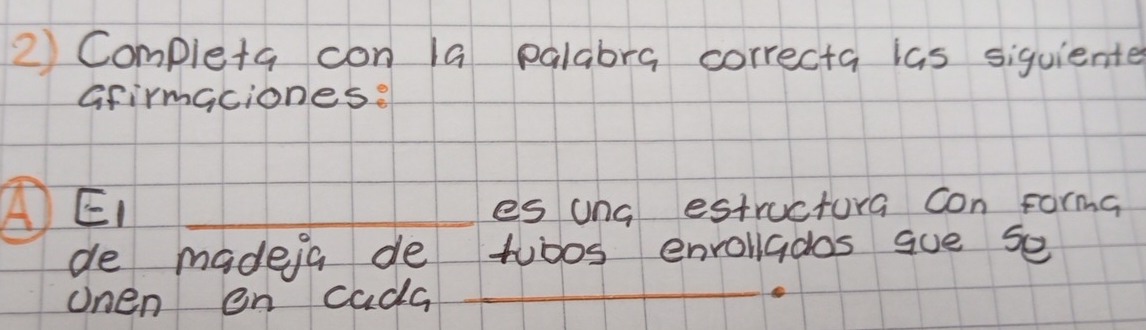 2) Completa con la palabra correcta las siguiente
afirmaciones:
A) El __________ es una estructura con forma
de madeja de tubos enrollados que se
unen en cada __________.